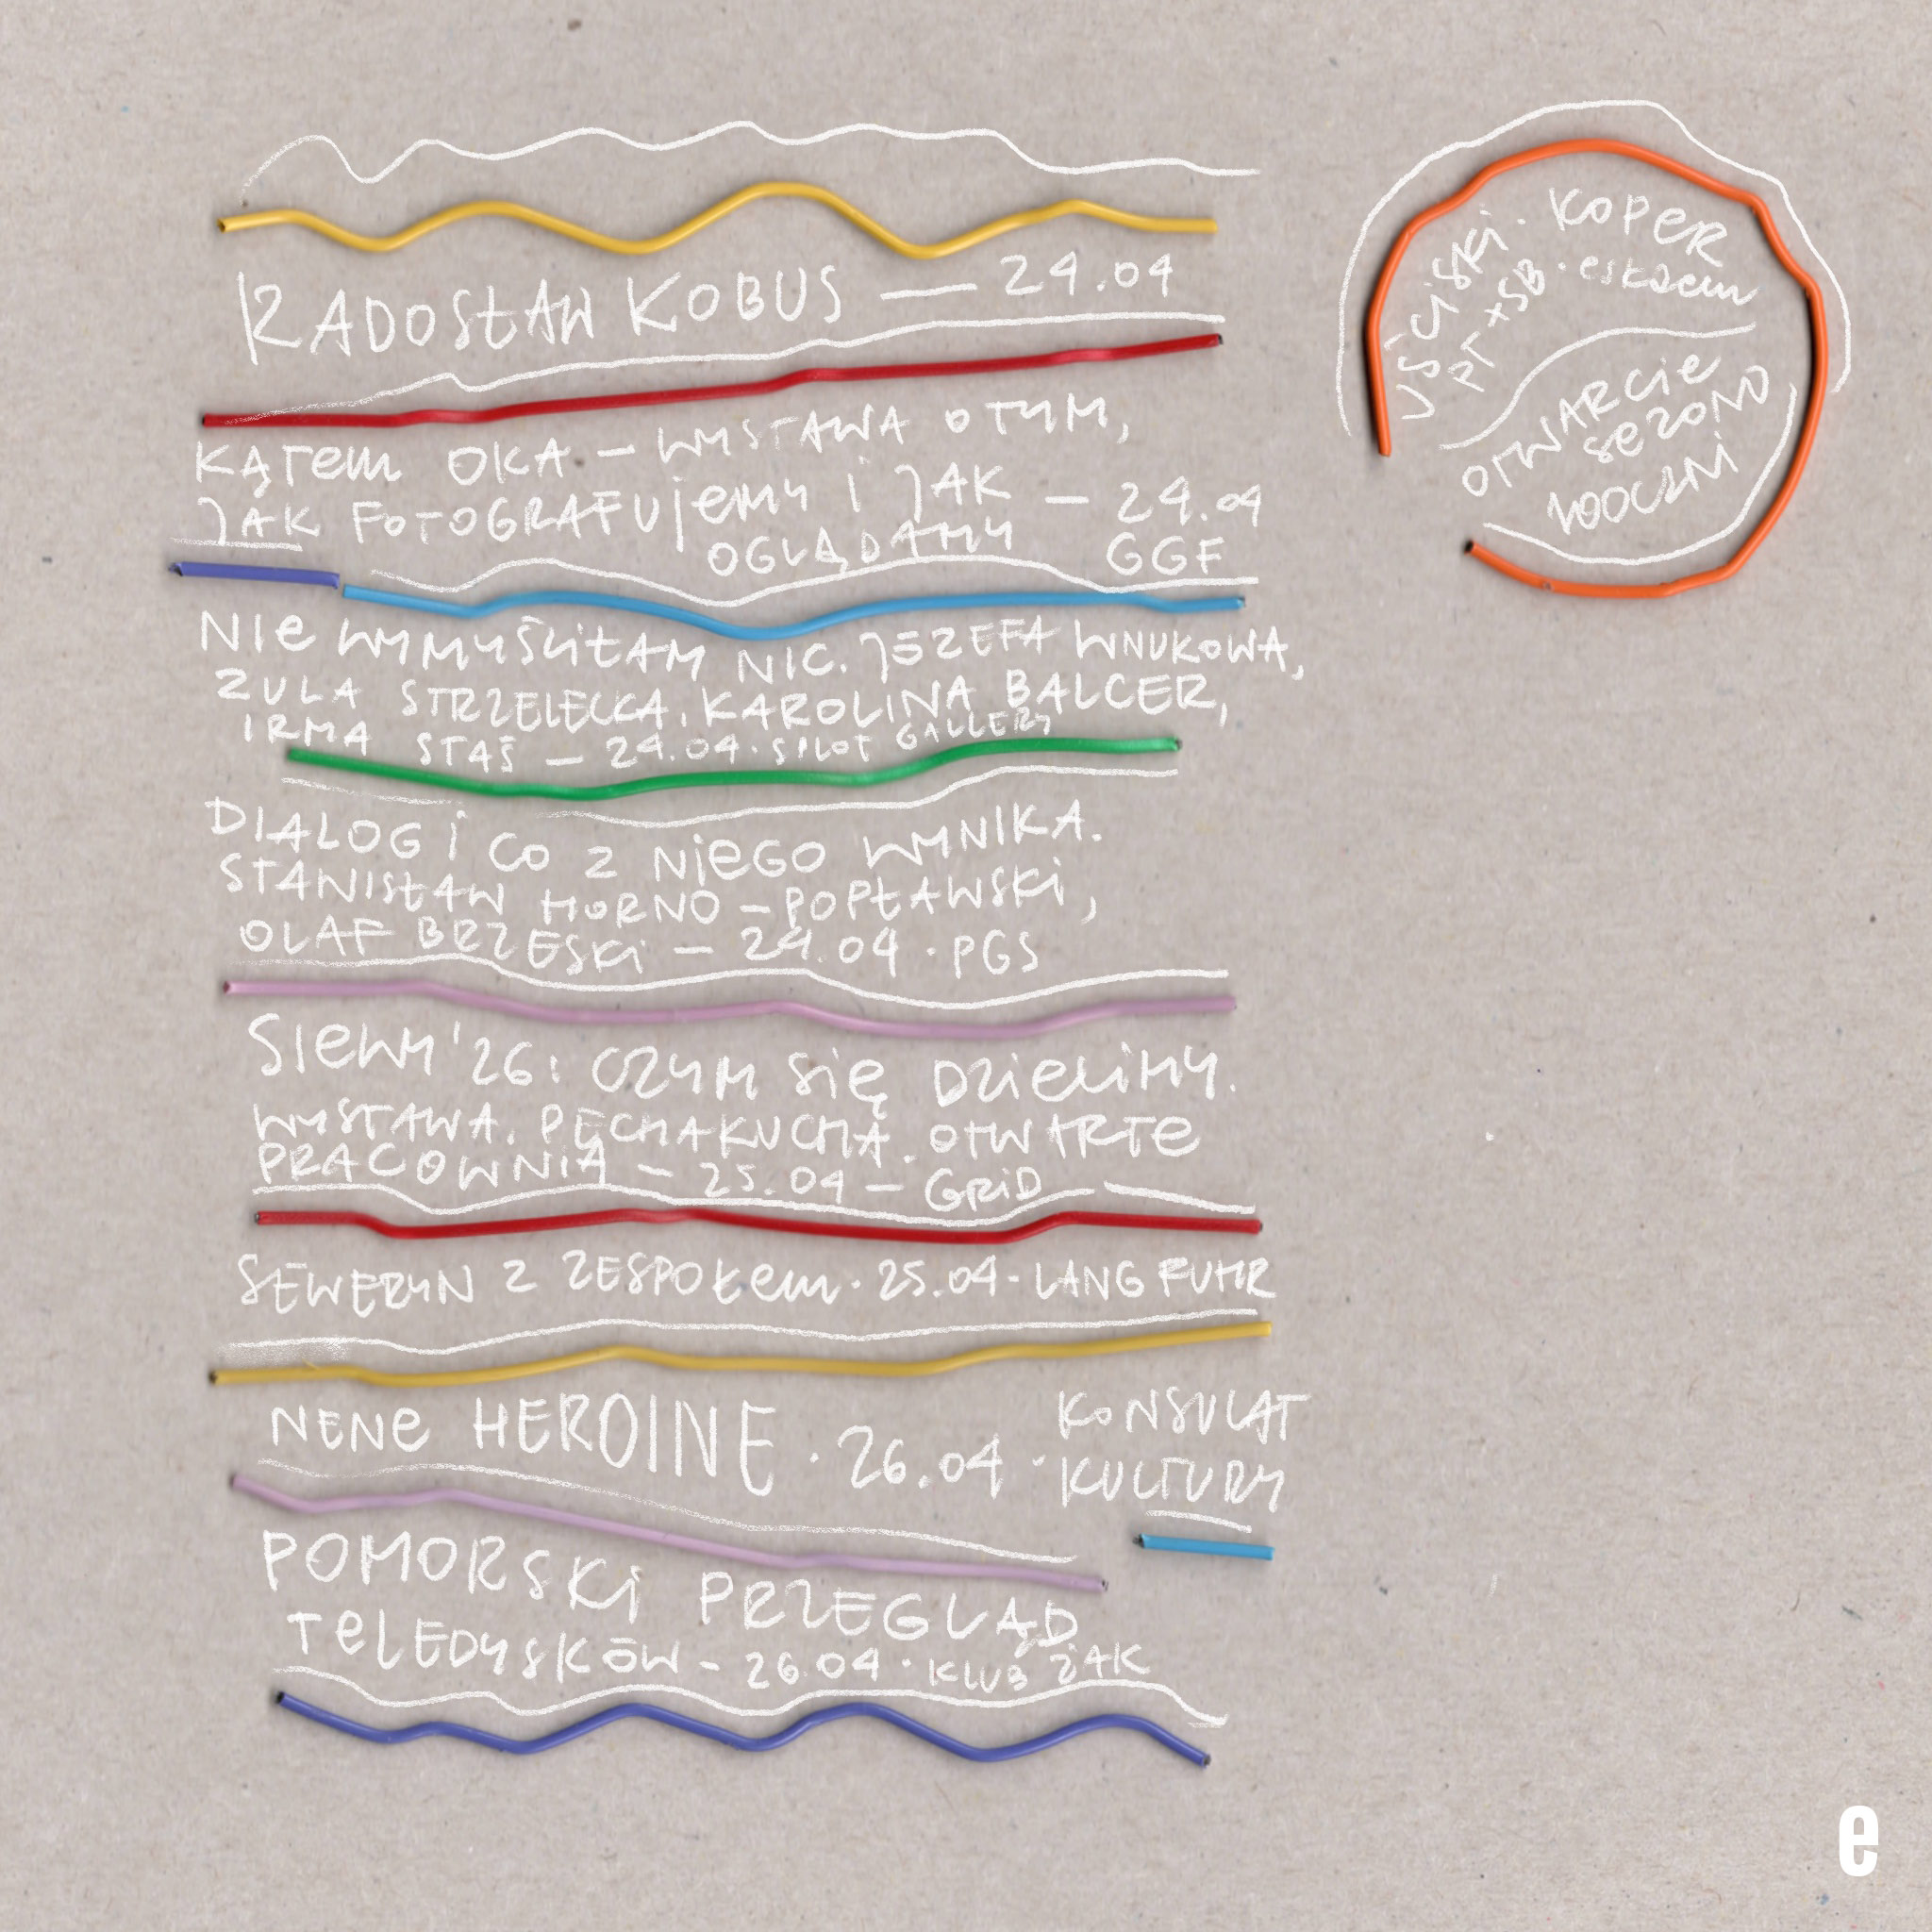 RADOSŁAW KOBUS — 24.04
KĄTem OKA — WYSTAWA O TYM,
JAK FOTOGRAFUjemy i JAK — 24.04
OGLĄDAMY GGF
Nie WYMYŚLiłAM NIC. JÓZEFA WNUKOWA,
ZULA STRZELECKA, KAROLINA BALCER,
IRMA STAŚ — 24.04 · SPLOT GALLERY
DIALOG i CO Z NieGO WYNIKA.
STANISŁAW HORNO — POPŁAWSKi,
OLAF BRZESKi — 24.04 · PGS
SIEWY '26: CZYM Się DZIELIMY.
WYSTAWA. PECHAKUCHA. OTWARTe
PRACOWNIA — 25.04 — GRiD
SEWERYN Z ZESPOŁem · 25.04 - LANG FUHR
NENe HEROINE · 26.04 · KONSULAT
KULTURY
POMORSKi PRZEGLĄD
TeLEDYSKÓW - 26.04 · KLUB ŻAK
UŚCiSKi · KOPER
PT + SB · eskaem
OTWARCie
SeZONU